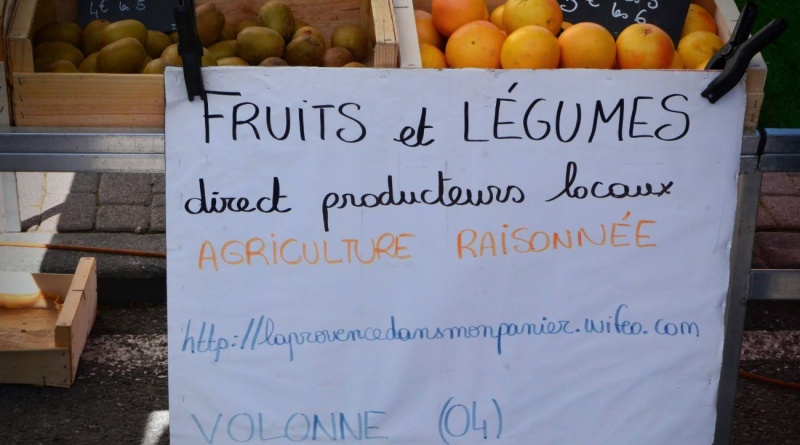 4€ le
FRUITS et LÉGUMES
direct producteurs locaux
AGRICULTURE RAISONNÉE
http://laprovencedansmonpanier.wifeo.com
VOLONNE (04)